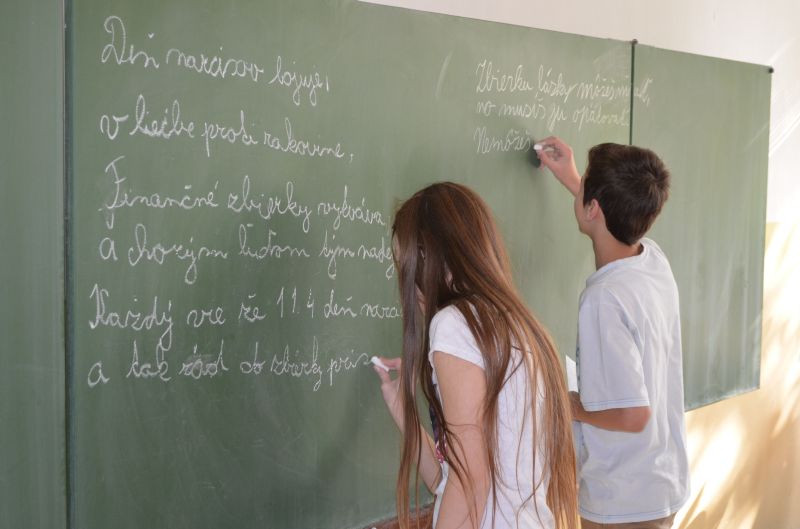 Deň narcisov bojuje,
v liečbe proti rakovine,
Finančné zbierky vykváva
a chorým ľuďom tým
Každý vie že 11.4 deň
a tak rád do zbierky
Zbierku lásky môžeš mať,
no musíš ju opätovať.
Nemôžeš